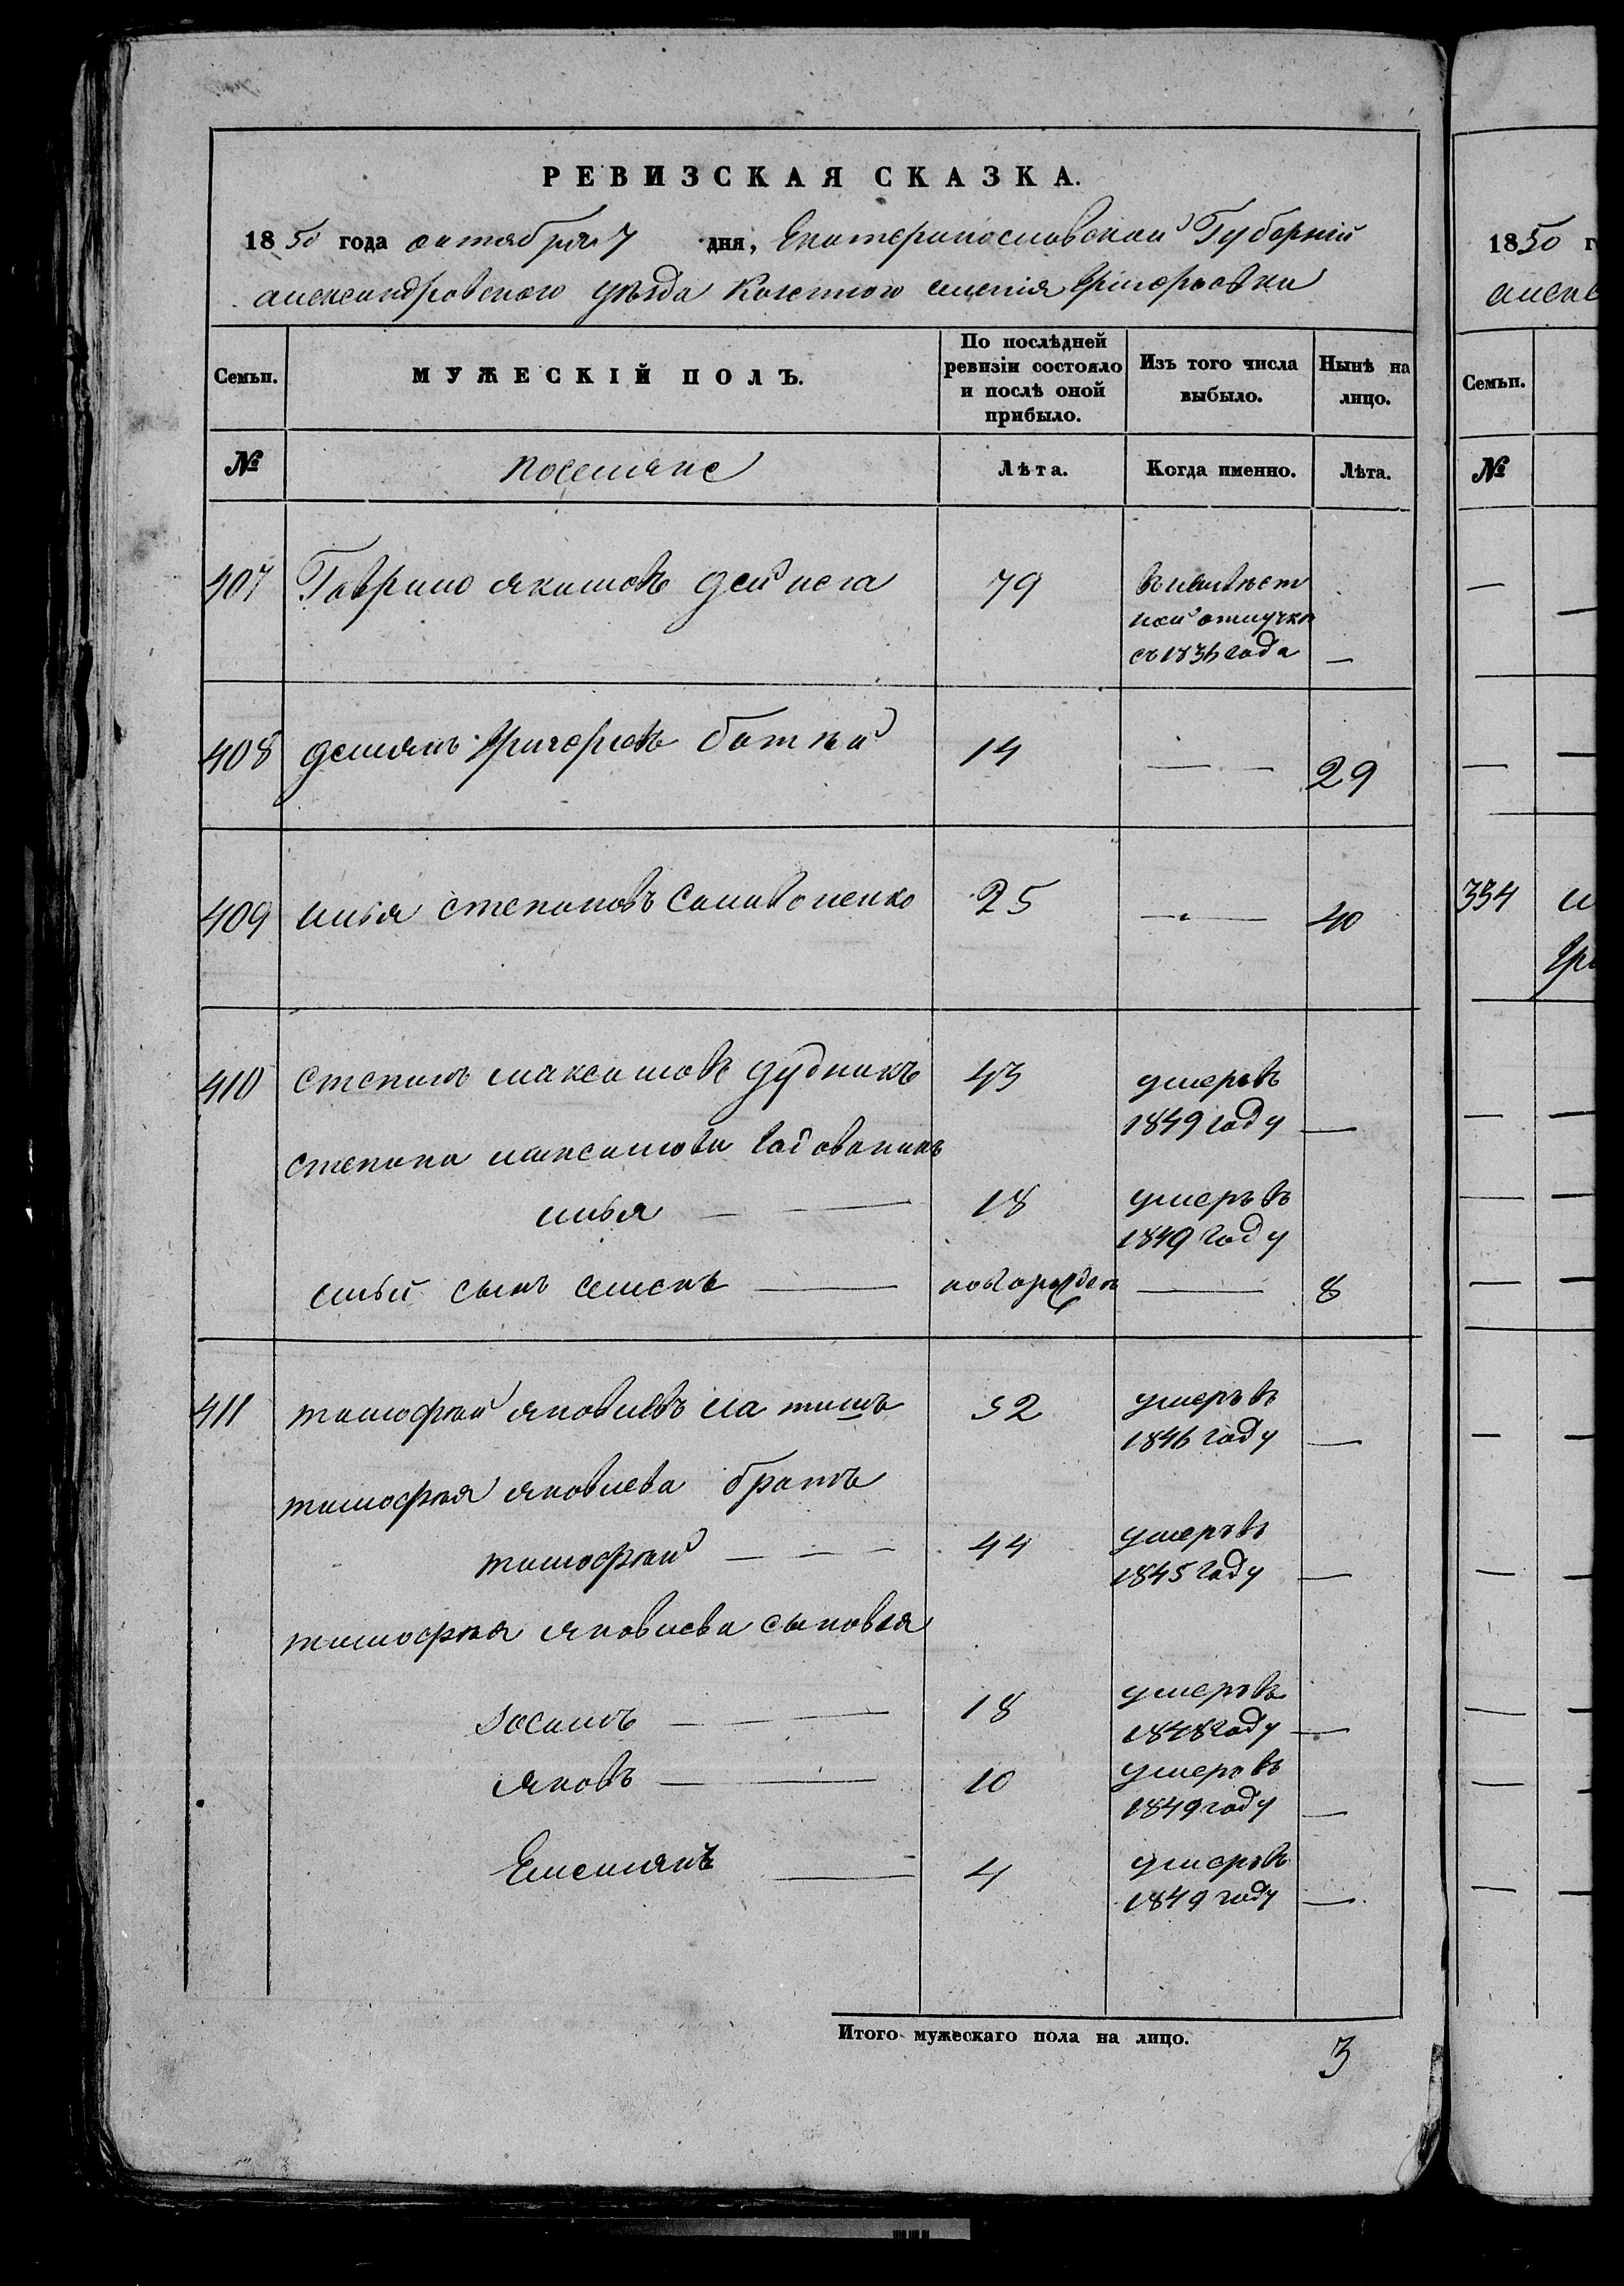 РЕВИЗСКАЯ СКАЗКА.
1850 года октября 7 дня, Екатеринославской Губерніи
александровского уѣзда Казенного селенія Григорьевки
Семьи. МУЖЕСКІЙ ПОЛЪ. По послѣдней ревизіи состояло и послѣ оной прибыло. Изъ того числа выбыло. Нынѣ на лицо.
№ поселяне Лѣта. Когда именно. Лѣта.
407 Гаврило якимовъ 79 въ неизвѣст
ной отлучки
съ 1836 года —
408 демянъ Григорьевъ 14 — 29
409 илья степановъ Саливоненко 25 — 40
410 степанъ максимовъ дудникъ 43 умеръ въ
1849 году —
степана максимова годованикъ
илья — 18 умеръ въ
1849 году
ильи сынъ семенъ — новорожденъ — 8
411 тимофей яковлевъ 52 умеръ въ
1846 году —
тимофея яковлева братъ
тимофей — 44 умеръ въ
1845 году —
тимофея яковлева сыновья
Іосипъ — 18 умеръ въ
1848 году —
яковъ — 10 умеръ въ
1849 году —
Емельянъ — 4 умеръ въ
1849 году —
Итого мужескаго пола на лицо. 3
1850 г
Семьи.
№
334